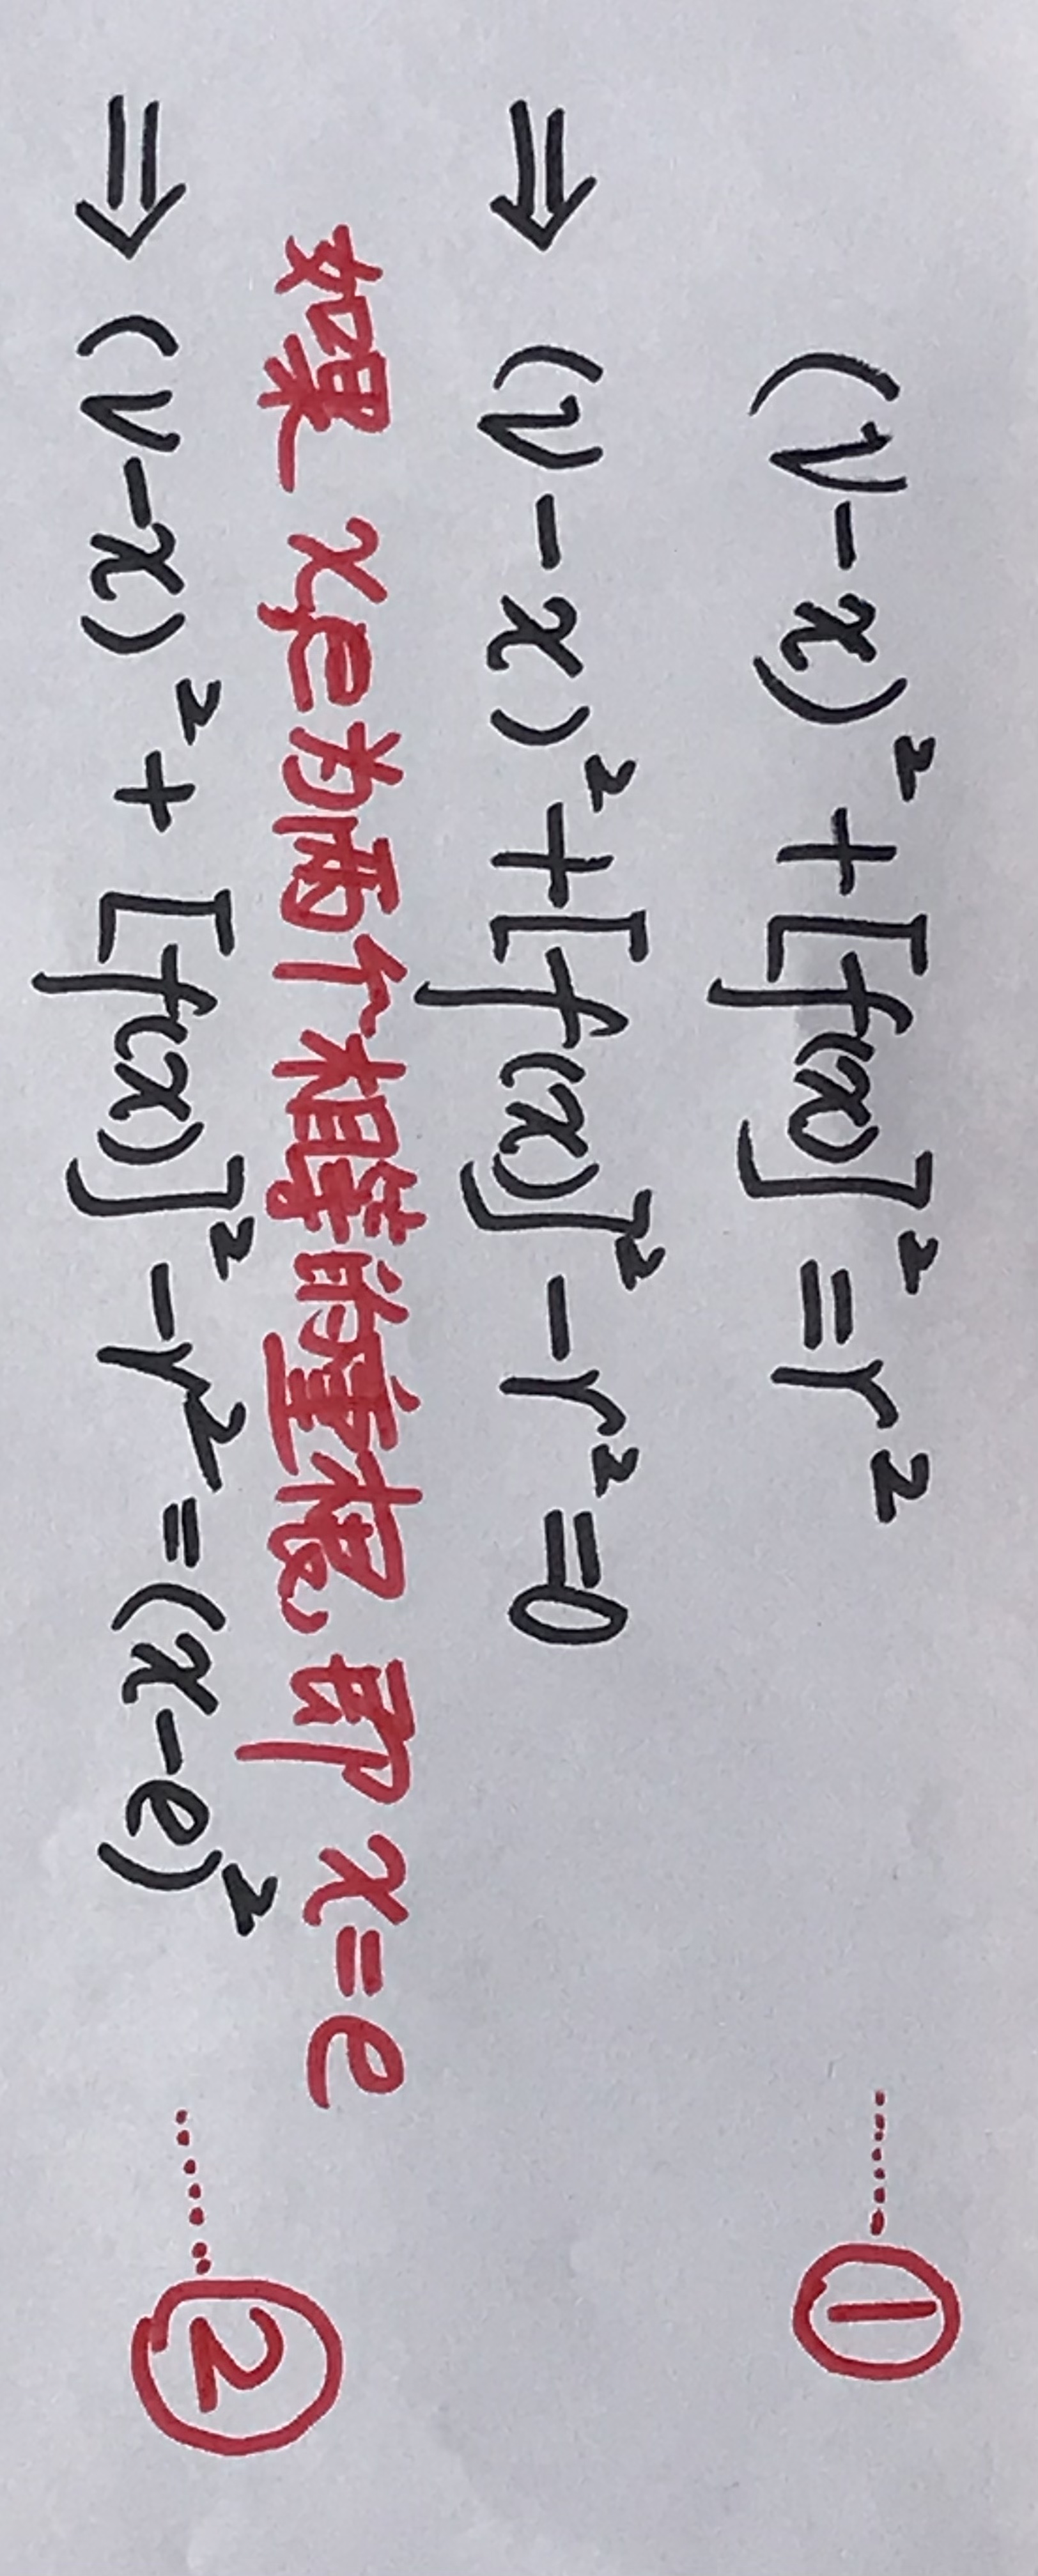 (ν-x)²+[f(x)]²=r² ……①
⇒ (ν-x)²+[f(x)]²-r²=0
如果 x,e为两个相等的重根,即 x=e
⇒ (ν-x)²+[f(x)]²-r²=(x-e)² ……②